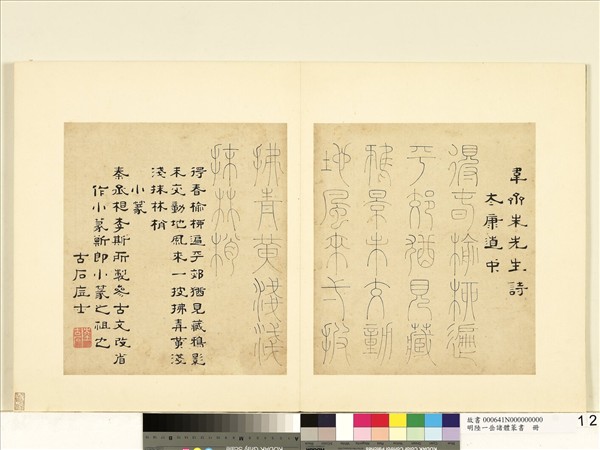 先生詩
太康道中
得春榆柳遍
平郊猶見藏
鴉景未交動
地風來弌披
拂青黃淺淺
抹林梢
得春榆柳遍平郊猶見藏鴉影
未交動地風來一披拂青黃淺
淺抹林梢
小篆
秦丞相李斯所製參古文改省
作小篆斯即小篆之祖也
古石居士
故書 000641N000000000
明陸一岳諸體篆書 冊
12